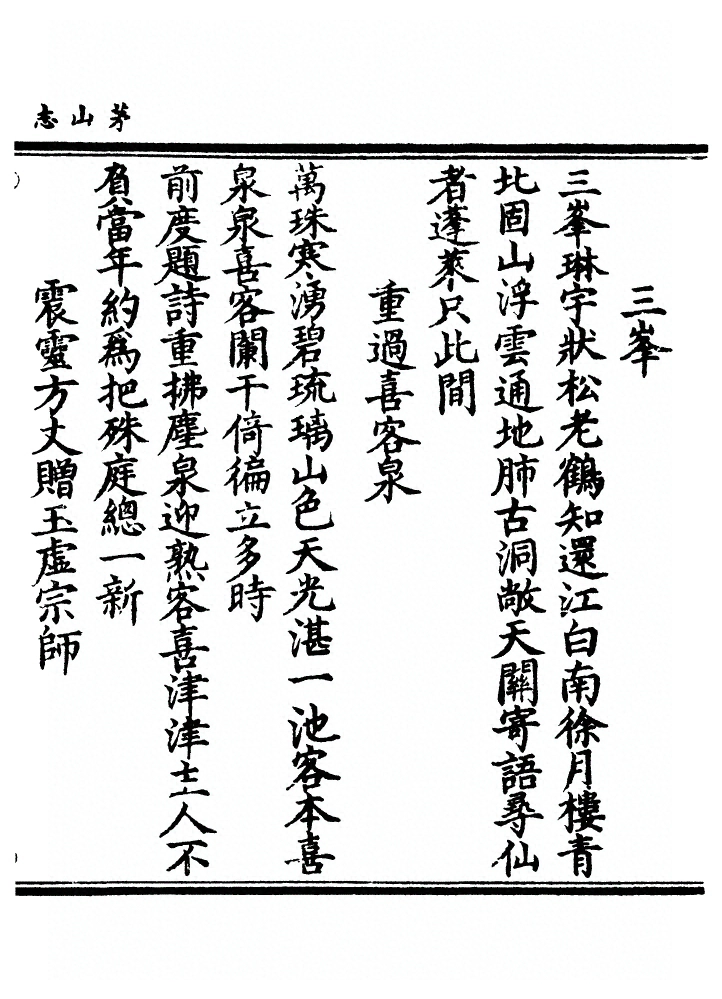 茅山志
三峯
三峯琳宇狀松老鶴知還江白南徐月樓青
北固山浮雲通地肺古洞敞天關寄語尋仙
者蓬萊只此間
重過喜客泉
萬珠寒湧碧琉璃山色天光湛一池客本喜
泉泉喜客闌干倚徧立多時
前度題詩重拂塵泉迎熟客喜津津主人不
負當年約爲把殊庭總一新
震靈方丈贈玉虛宗師